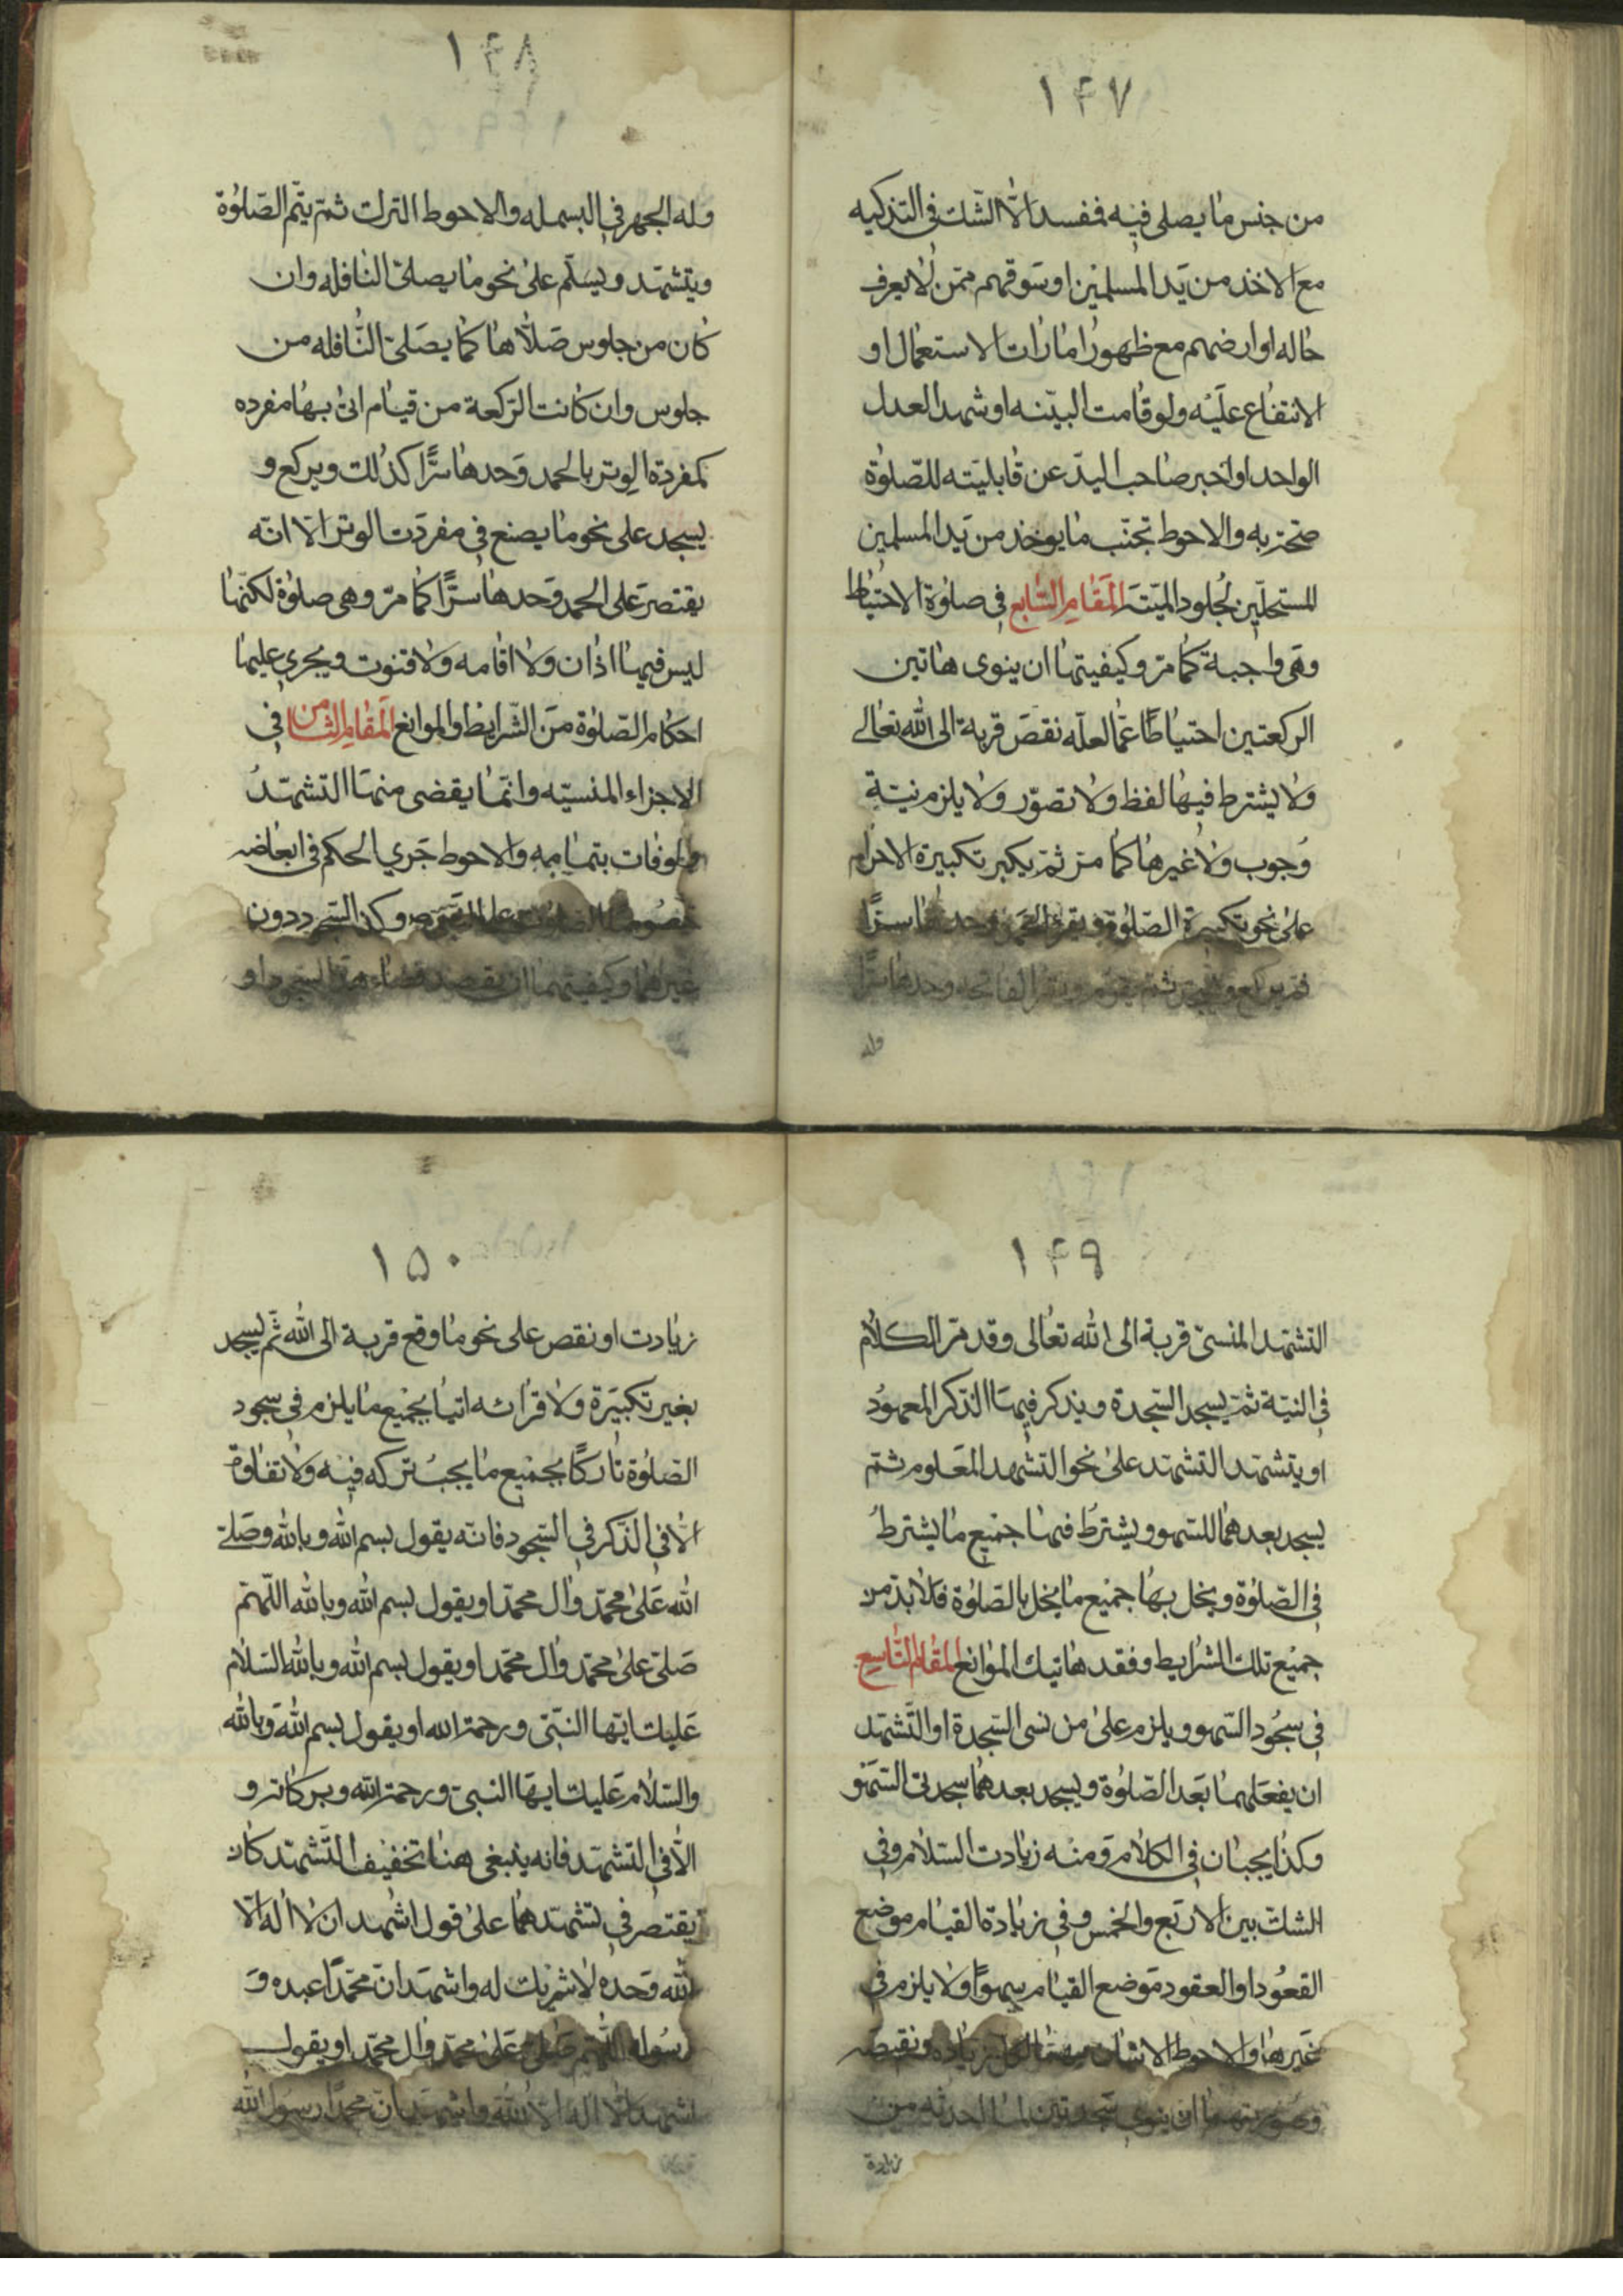 ١۴٧
من جنس ما يصلى فيه فمفسد الّا الشك فى التذكيه
مع الاخذ من يد المسلمين او سوقهم ممّن لا يعرف
حاله او ارضهم مع ظهور امارات الاستعمال او
الانتفاع عليه ولو قامت البيّنه او شهد العدل
الواحد او اخبر صاحب اليد عن قابليّته للصّلوة
صحّت به والاحوط تجنّب ما يوخذ من يد المسلمين
المستحلّين لجلود الميتة المقام السّابع فى صلوة الاحتياط
وهى واجبة كما مرّ وكيفيتها ان ينوى هاتين
الركعتين احتياطًا عمّا لعلّه نقص قربة الى الله تعالى
ولا يشترط فيها لفظ ولا تصوّر ولا يلزم نيّة
وجوب ولا غيرها كما مرّ ثمّ يكبر تكبيرة الاحرام
على نحو تكبيرة الصّلوة ويقرء الحمد وحدها سرًّا
ثم يركع ثم يقوم ويقرأ الفاتحه وحدها سرًّا
وله
١۴٨
وله الجهر فى البسمله والاحوط الترك ثمّ يتّم الصّلوة
ويتشهّد ويسلّم على نحو ما يصلىّ النافله وان
كان من جلوس صلّاها كما يصلىّ النّافله من
جلوس وان كانت الرّكعة من قيام اتى بها مفرده
كمفردة الوتر بالحمد وحدها سرًّا كذلك ويركع و
يسجد على نحو ما يصنع فى مفردت الوتر الّا انّه
يقتصر على الحمد وحدها سرًّا كما مرّ وهى صلوة لكنّها
ليس فيها اذان ولا اقامه ولا قنوت ويجرى عليها
احكام الصّلوة من الشّرايط والموانع المقام الثامن فى
الاجزاء المنسيّه وانّما يقضى منها التشهّد
ولو فات بتمامه والاحوط جرى الحكم فى ابعاضه
على النّبى وكذا السّجود دون
غيرهما وكيفيتهما ان يقصد قضاء هذا السّجود او
١۴٩
التشهّد المنسىّ قربة الى الله تعالى وقد مرّ الكلام
فى النيّة ثمّ يسجد السّجدة ويذكر فيها الذّكر المعهود
او يتشهّد التشهّد على نحو التشهد المعلوم ثمّ
يسجد بعدهما للسّهو ويشترط فيها جميع ما يشترط
فى الصّلوة ويخل بها جميع ما يخل بالصّلوة فلا بدّ من
جميع تلك الشرايط وفقد هاتيك الموانع المقام التّاسع
فى سجود السّهو ويلزم على من نسى السّجدة او التّشهّد
ان يفعلهما بعد الصّلوة ويسجد بعدهما سجدتى السّهو
وكذا يجبان فى الكلام ومنه زيادت السّلام وفى
الشك بين الاربع والخمس وفى زيادة القيام موضع
القعود او العقود موضع القيام سهوًا ولا يلزم فى
غيرها والاحوط الاتيان بهما لكل زيادة ونقيصه
وصورتهما ان ينوى سجدتين لما احدثه من
زيادة
١۵٠
زيادت او نقص على نحو ما وقع قربة الى الله ثمّ يسجد
بغير تكبيرة ولا قرائه اتيا بجميع ما يلزم فى سجود
الصلوة تاركًا بجميع ما يجب تركه فيه ولا تفاوة
الّا فى الذّكر فى السّجود فانّه يقول بسم الله وبالله وصلىّ
الله على محمّد وال محمّد او يقول بسم الله وبالله اللّهمّ
صلىّ على محمّد وال محمّد او يقول بسم الله وبالله السّلام
عليك ايّها النّبىّ ورحمة الله او يقول بسم الله وبالله
والسّلام عليك ايّها النبىّ ورحمة الله وبركاته و
الّا فى التشهّد فانه ينبغى هنا تخفيف التّشهّد كان
يقتصر فى تشهّدهما على قول اشهد ان لا اله الّا
الله وحده لا شريك له واشهد انّ محمّدًا عبده و
رسوله اللّهمّ صلّ على محمّد وال محمّد او يقول
اشهد ان لا اله الّا الله واشهد انّ محمّدًا رسول الله